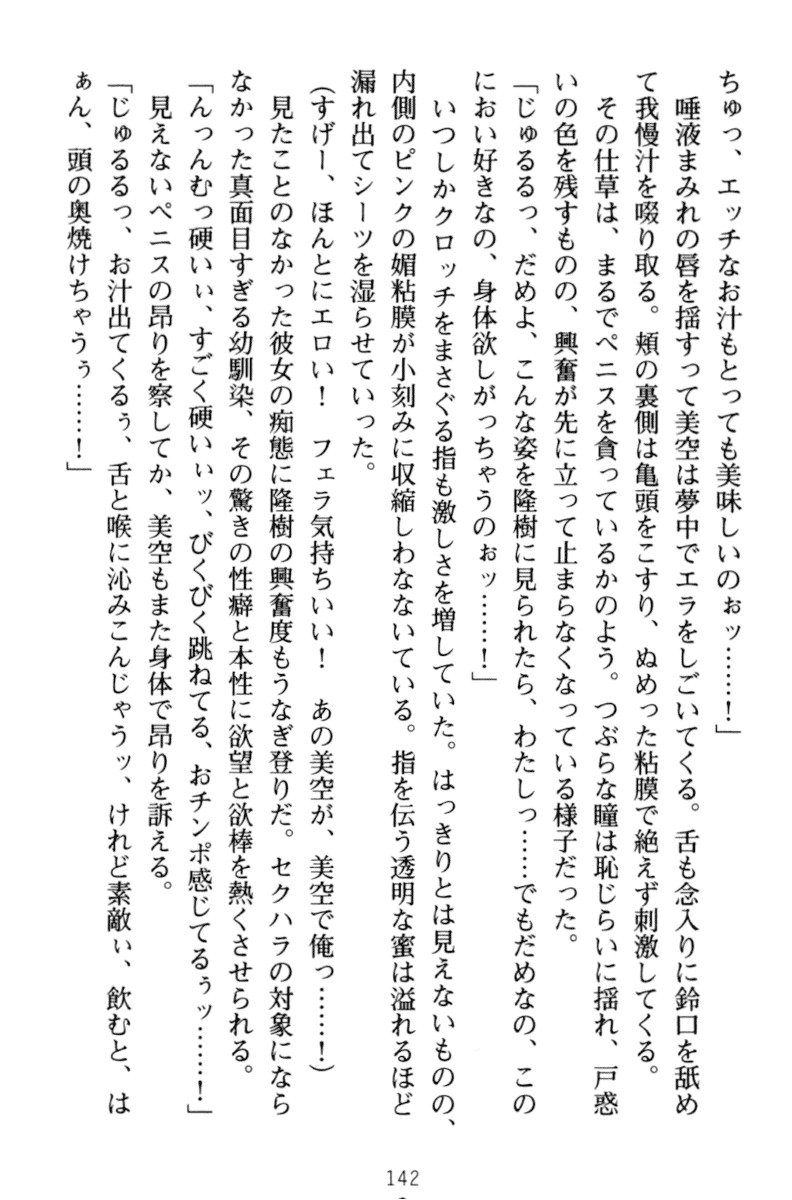 ちゅっ、エッチなお汁もとっても美味しいのぉッ……！」
唾液まみれの唇を揺すって美空は夢中でエラをしごいてくる。舌も念入りに鈴口を舐め
て我慢汁を啜り取る。頬の裏側は亀頭をこすり、ぬめった粘膜で絶えず刺激してくる。
その仕草は、まるでペニスを貪っているかのよう。つぶらな瞳は恥じらいに揺れ、戸惑
いの色を残すものの、興奮が先に立って止まらなくなっている様子だった。
「じゅるるっ、だめよ、こんな姿を隆樹に見られたら、わたしっ……でもだめなの、この
におい好きなの、身体欲しがっちゃうのぉッ……！」
いつしかクロッチをまさぐる指も激しさを増していた。はっきりとは見えないものの、
内側のピンクの媚粘膜が小刻みに収縮しわなないている。指を伝う透明な蜜は溢れるほど
漏れ出てシーツを湿らせていった。
（すげー、ほんとにエロい！　フェラ気持ちいい！　あの美空が、美空で俺っ……！）
見たことのなかった彼女の痴態に隆樹の興奮度もうなぎ登りだ。セクハラの対象になら
なかった真面目すぎる幼馴染、その驚きの性癖と本性に欲望と欲棒を熱くさせられる。
「んっんむっ硬いぃ、すごく硬いぃッ、びくびく跳ねてる、おチンポ感じてるぅッ……！」
見えないペニスの昂りを察してか、美空もまた身体で昂りを訴える。
「じゅるるっ、お汁出てくるぅ、舌と喉に沁みこんじゃうッ、けれど素敵ぃ、飲むと、は
ぁん、頭の奥焼けちゃうぅ……！」
142